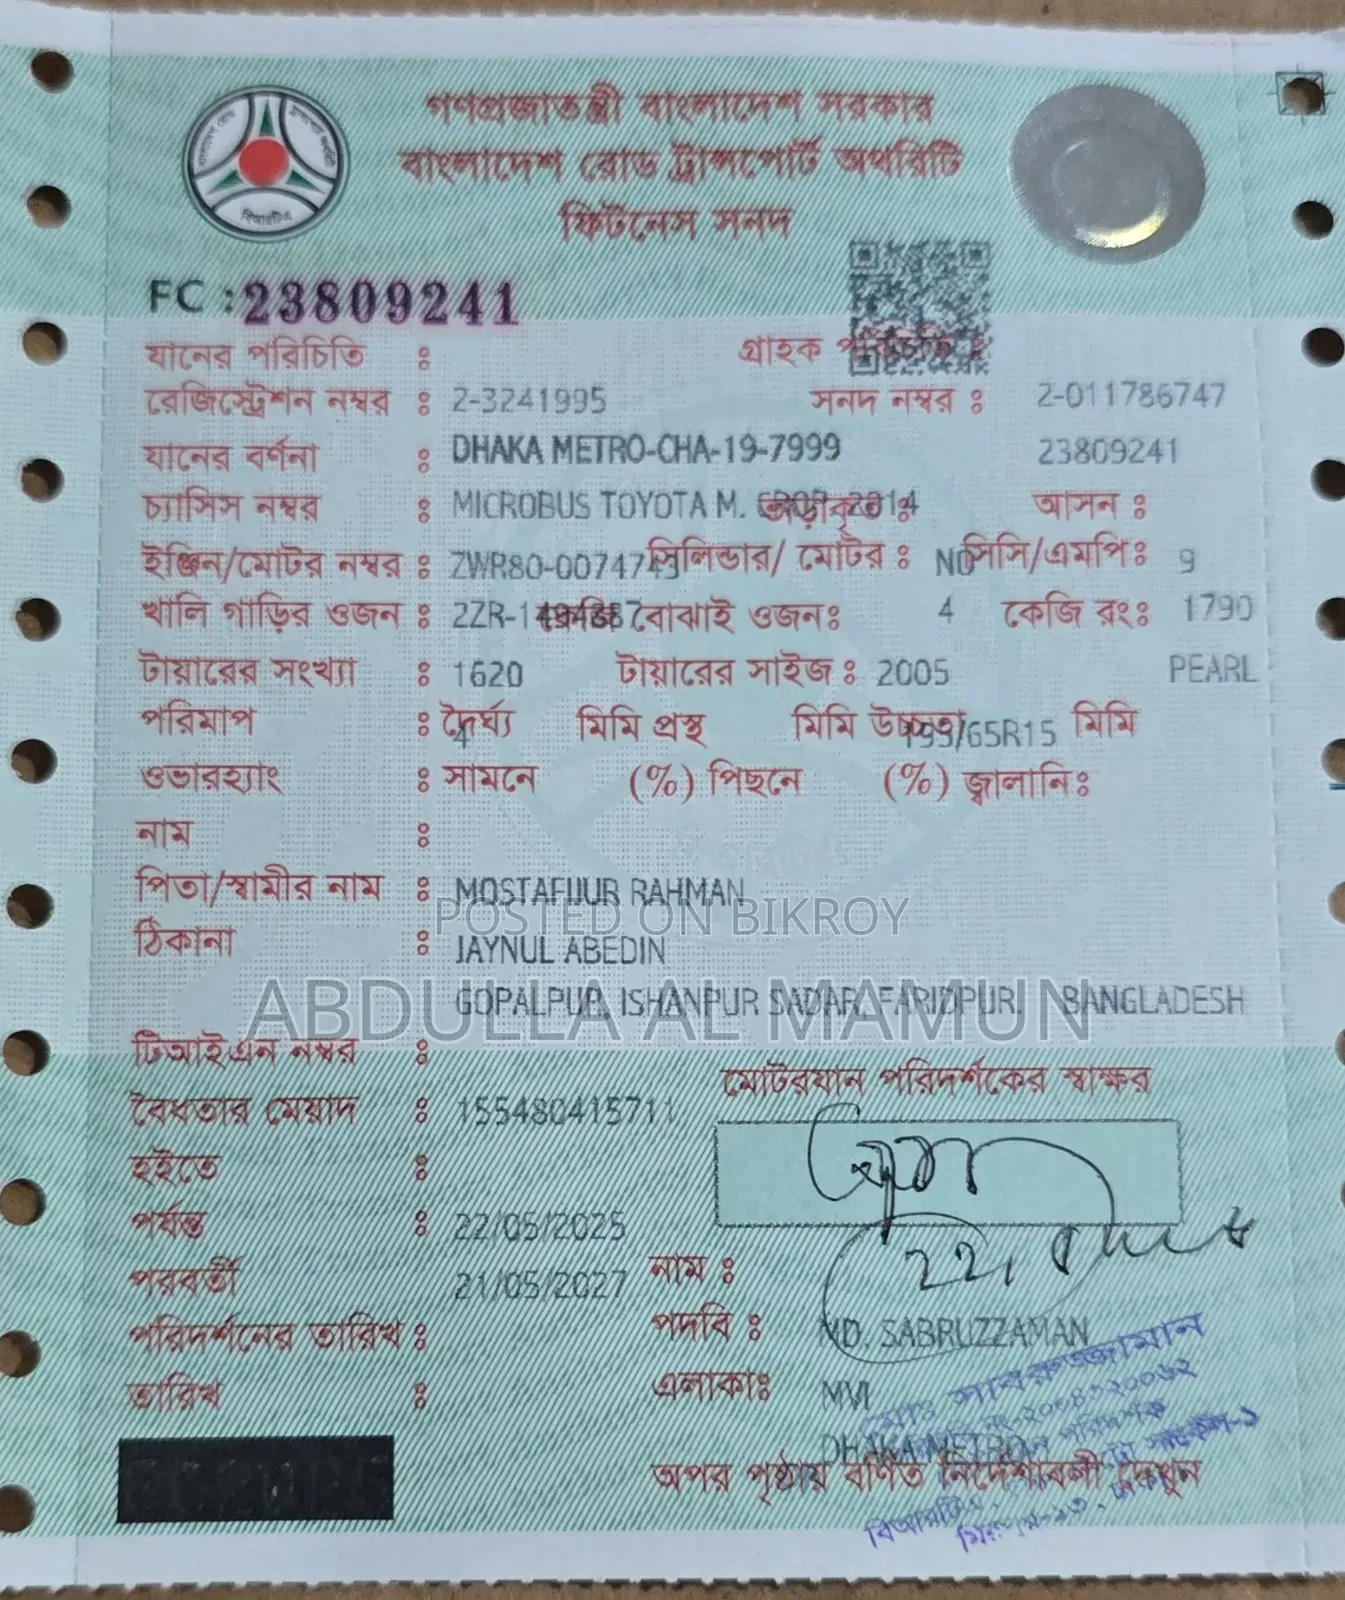 গণপ্রজাতন্ত্রী বাংলাদেশ সরকার
বাংলাদেশ রোড ট্রান্সপোর্ট অথরিটি
ফিটনেস সনদ
বিআরটিএ
FC : 23809241
যানের পরিচিতি : গ্রাহক পরিচিতি :
রেজিস্ট্রেশন নম্বর : 2-3241995 সনদ নম্বর : 2-011786747
যানের বর্ণনা : DHAKA METRO-CHA-19-7999 23809241
চ্যাসিস নম্বর : MICROBUS TOYOTA M. 2014 আসন :
ইঞ্জিন/মোটর নম্বর : ZWR80-0074743 সিলিন্ডার/ মোটর : NO সিসি/এমপি: 9
খালি গাড়ির ওজন : কেজি বোঝাই ওজন: 4 কেজি রং: 1790
টায়ারের সংখ্যা : 1620 টায়ারের সাইজ : 2005 PEARL
পরিমাপ : দৈর্ঘ্য মিমি প্রস্থ মিমি উচ্চতা মিমি
4 195/65R15
ওভারহ্যাং : সামনে (%) পিছনে (%) জ্বালানি:
নাম :
পিতা/স্বামীর নাম : MOSTAFIJUR RAHMAN
POSTED ON BIKROY
ঠিকানা : JAYNUL ABEDIN
GOPALPUR, ISHANPUR SADAR, FARIDPUR. BANGLADESH
ABDULLA AL MAMUN
টিআইএন নম্বর :
মোটরযান পরিদর্শকের স্বাক্ষর
বৈধতার মেয়াদ : 155480415711
হইতে :
পর্যন্ত : 22/05/2025
পরবর্তী 21/05/2027
নাম :
পরিদর্শনের তারিখ :
পদবি : MD. SABRUZZAMAN
তারিখ :
এলাকা: MVI
DHAKA METRO
অপর পৃষ্ঠায় বর্ণিত নির্দেশাবলী দেখুন